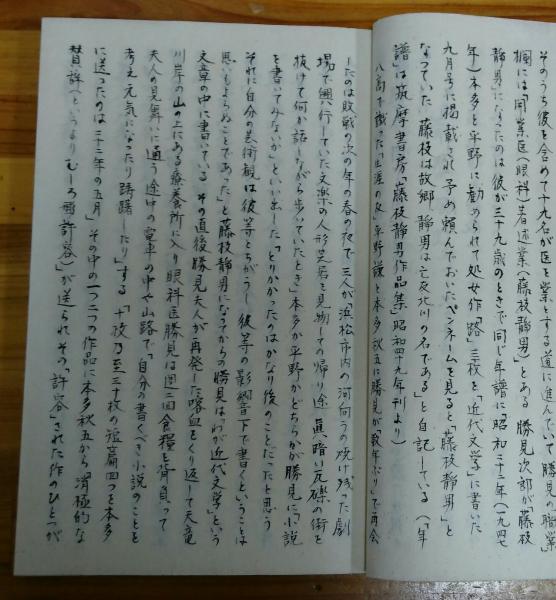 そのうち彼を含めて十九名が医を業とする道に進んでいて勝見の職業
欄には開業医(眼科)著述業(藤枝静男)とある 勝見次郎が「藤枝
静男」になったのは彼が三十九歳のときで同じ年譜に「昭和二十二年(一九四七
年)本多と平野に勧められて処女作「路」三枚を「近代文学」に書いた
九月号に掲載され予め頼んでおいたペンネームを見ると「藤枝静男」と
なっていた 藤枝は故郷 静男は亡友北川の名である」と自記している(「年
譜」は筑摩書房「藤枝静男作品集」昭和四十九年刊より)
八高で識った「生涯の友」平野謙と本多秋五に勝見が「数年ぶり」で再会
したのは敗戦の次の年の春の夜で三人が「浜松市内の河向うの焼け残った劇
場で興行していた文楽の人形芝居を見物しての帰り途 真暗い瓦礫の街を
抜けて何か話しながら歩いていたとき」本多か平野かどちらかが勝見に「小説
を書いてみないか」といい出した「とりかかったのはかなり後のことだったと思う
それに自分の芸術観は彼等とちがうし 彼等の影響下で書くということは
思いもよらぬことであった」と藤枝静男になってからの勝見は「わが近代文学」という
文章の中に書いている その直後勝見夫人が再発した喀血をくり返して天竜
川岸の山の上にある療養所に入り眼科医勝見は週二回食糧を背負って
夫人の見舞いに通う途中の電車の中や山路で「自分の書くべき小説のことを
考え元気になったり躊躇したり」する 「十枚乃至三十枚の短篇四つを本多
に送ったのは二十二年の五月」その中の一つ二つの作品に本多秋五から消極的な
賛辞というよりむしろ「許容」が送られその「許容」された作のひとつが